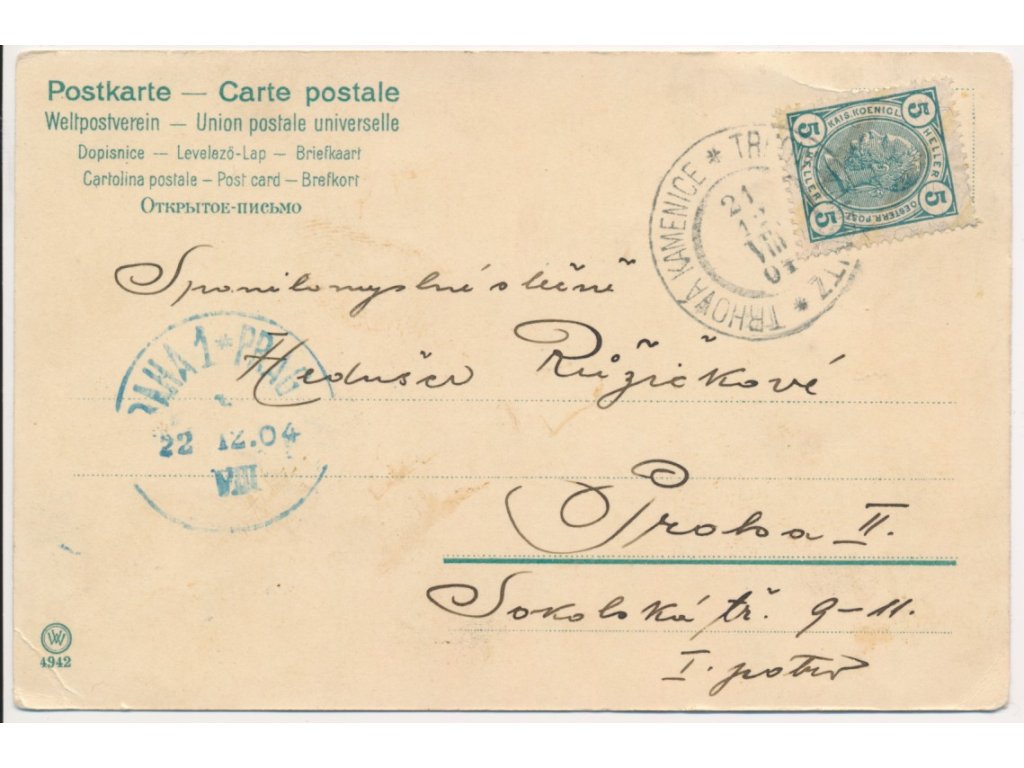 Postkarte — Carte postale
Weltpostverein — Union postale universelle
Dopisnice — Levelező-Lap — Briefkaart
Cartolina postale — Post card — Brefkort
Открытое-письмо
TRHOVÁ KAMENICE * TR
21
12
VIII
04
5 5
KAIS. KOENIGL.
HELLER HELLER
OESTERR. POST
5 5
Spanilomyslné slečně
PRAHA 1 * PRAG
22 12.04
VIII
Hedušce Růžičkové
Praha II.
Sokolská tř. 9-11.
I. patro
W
4942